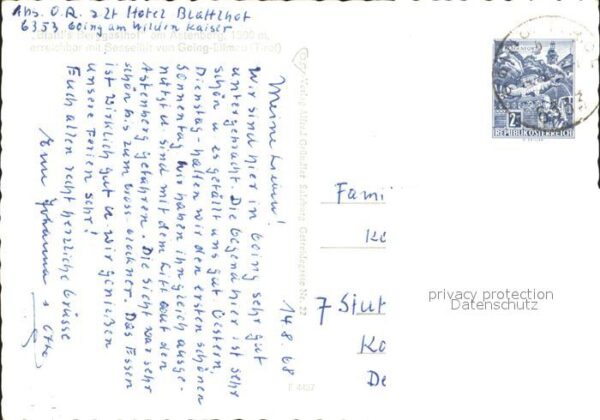 Abs. O.R. z Zt Hotel Blattlhof
6353 Going am Wilden Kaiser
"Berggasthof" am Astenberg, 1500 m,
erreichbar mit Sessellift von Going-Ellmau (Tirol)
14.8.68
Meine Lieben!
Wir sind hier in Going sehr gut
untergebracht. Die Gegend hier ist sehr
schön u es gefällt uns gut. Gestern,
Dienstag - hatten wir den ersten schönen
Sonnentag. Wir haben ihn gleich ausge-
nützt u. sind mit dem Lift auf den
Astenberg gefahren. Die Sicht war sehr
schön bis zum Grossglockner. Das Essen
ist wirklich gut u wir genießen
unsere Ferien sehr!
Euch allen recht herzliche Grüsse
Eure Johanna & Otto
Verlag Alfred Salzburg, Nr. 22
REPUBLIK ÖSTERREICH
Fami
Ke
7 Stut
Ko
De
privacy protection
Datenschutz